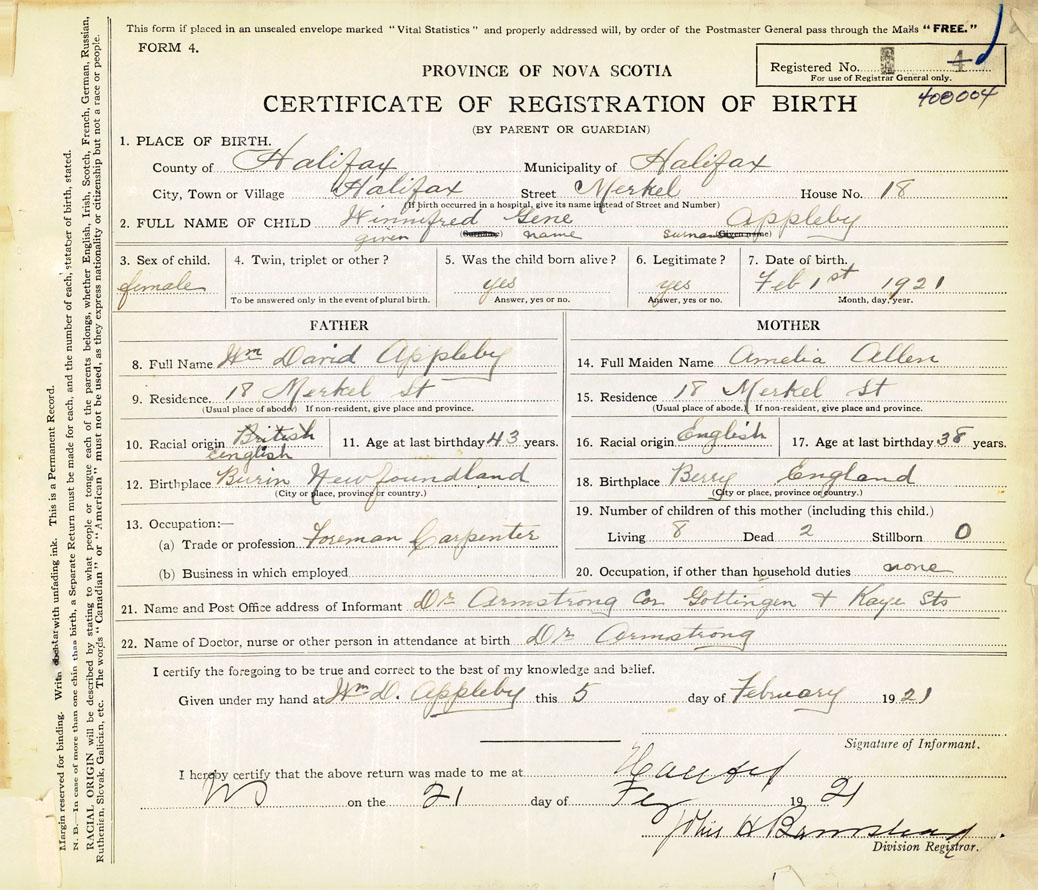 This form if placed in an unsealed envelope marked "Vital Statistics" and properly addressed will, by order of the Postmaster General pass through the Mails "FREE."
FORM 4.
Registered No. 4
For use of Registrar General only.
408004
PROVINCE OF NOVA SCOTIA
CERTIFICATE OF REGISTRATION OF BIRTH
(BY PARENT OR GUARDIAN)
1. PLACE OF BIRTH.
County of Halifax Municipality of Halifax
City, Town or Village Halifax Street Merkel House No. 18
(If birth occurred in a hospital, give its name instead of Street and Number)
2. FULL NAME OF CHILD Winnifred Gene Appleby
given (Surname) name surname (Given name)
3. Sex of child. 4. Twin, triplet or other? 5. Was the child born alive? 6. Legitimate? 7. Date of birth.
female yes yes Feb 1st 1921
To be answered only in the event of plural birth. Answer, yes or no. Answer, yes or no. Month, day, year.
FATHER
8. Full Name Wm David Appleby
9. Residence. 18 Merkel St
(Usual place of abode) If non-resident, give place and province.
10. Racial origin British 11. Age at last birthday 43 years.
English
12. Birthplace Burin Newfoundland
(City or place, province or country.)
13. Occupation:—
(a) Trade or profession Foreman Carpenter
(b) Business in which employed
MOTHER
14. Full Maiden Name Amelia Allen
15. Residence 18 Merkel St
(Usual place of abode.) If non-resident, give place and province.
16. Racial origin English 17. Age at last birthday 38 years.
18. Birthplace Berry England
(City or place, province or country.)
19. Number of children of this mother (including this child.)
Living 8 Dead 2 Stillborn 0
20. Occupation, if other than household duties none
21. Name and Post Office address of Informant Dr Armstrong Cor Gottingen + Kaye Sts
22. Name of Doctor, nurse or other person in attendance at birth Dr Armstrong
I certify the foregoing to be true and correct to the best of my knowledge and belief.
Given under my hand at Wm D. Appleby this 5 day of February 1921
Signature of Informant.
I hereby certify that the above return was made to me at Halifax
NS on the 21 day of Feb 1921
John H Barnstead
Division Registrar.
Margin reserved for binding. Write with unfading ink. This is a Permanent Record.
N. B.—In case of more than one child at a birth, a Separate Return must be made for each, and the number of each, stated.
RACIAL ORIGIN will be described by stating to what people or tongue each of the parents belongs, whether English, Irish, Scotch, French, German, Russian,
Ruthenian, Slovak, Galician, etc. The words "Canadian" or "American" must not be used, as they express nationality or citizenship but not a race or people.